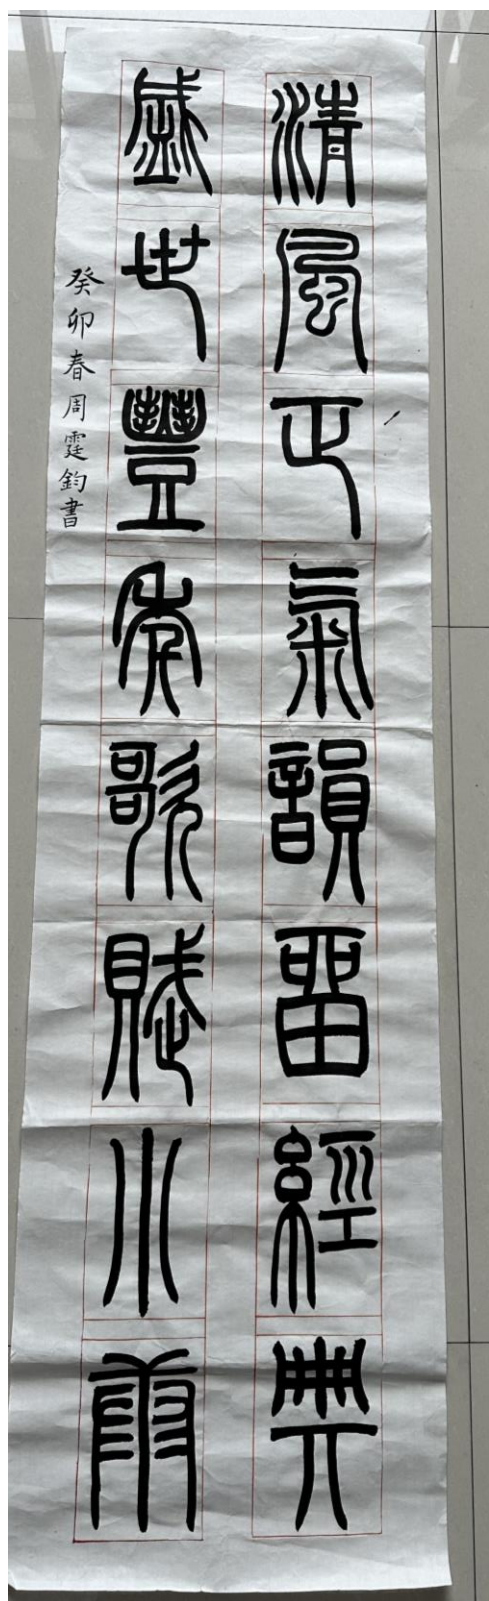 清風正氣韻留經典
盛世豐年歌賦小康
癸卯春周霆鈞書